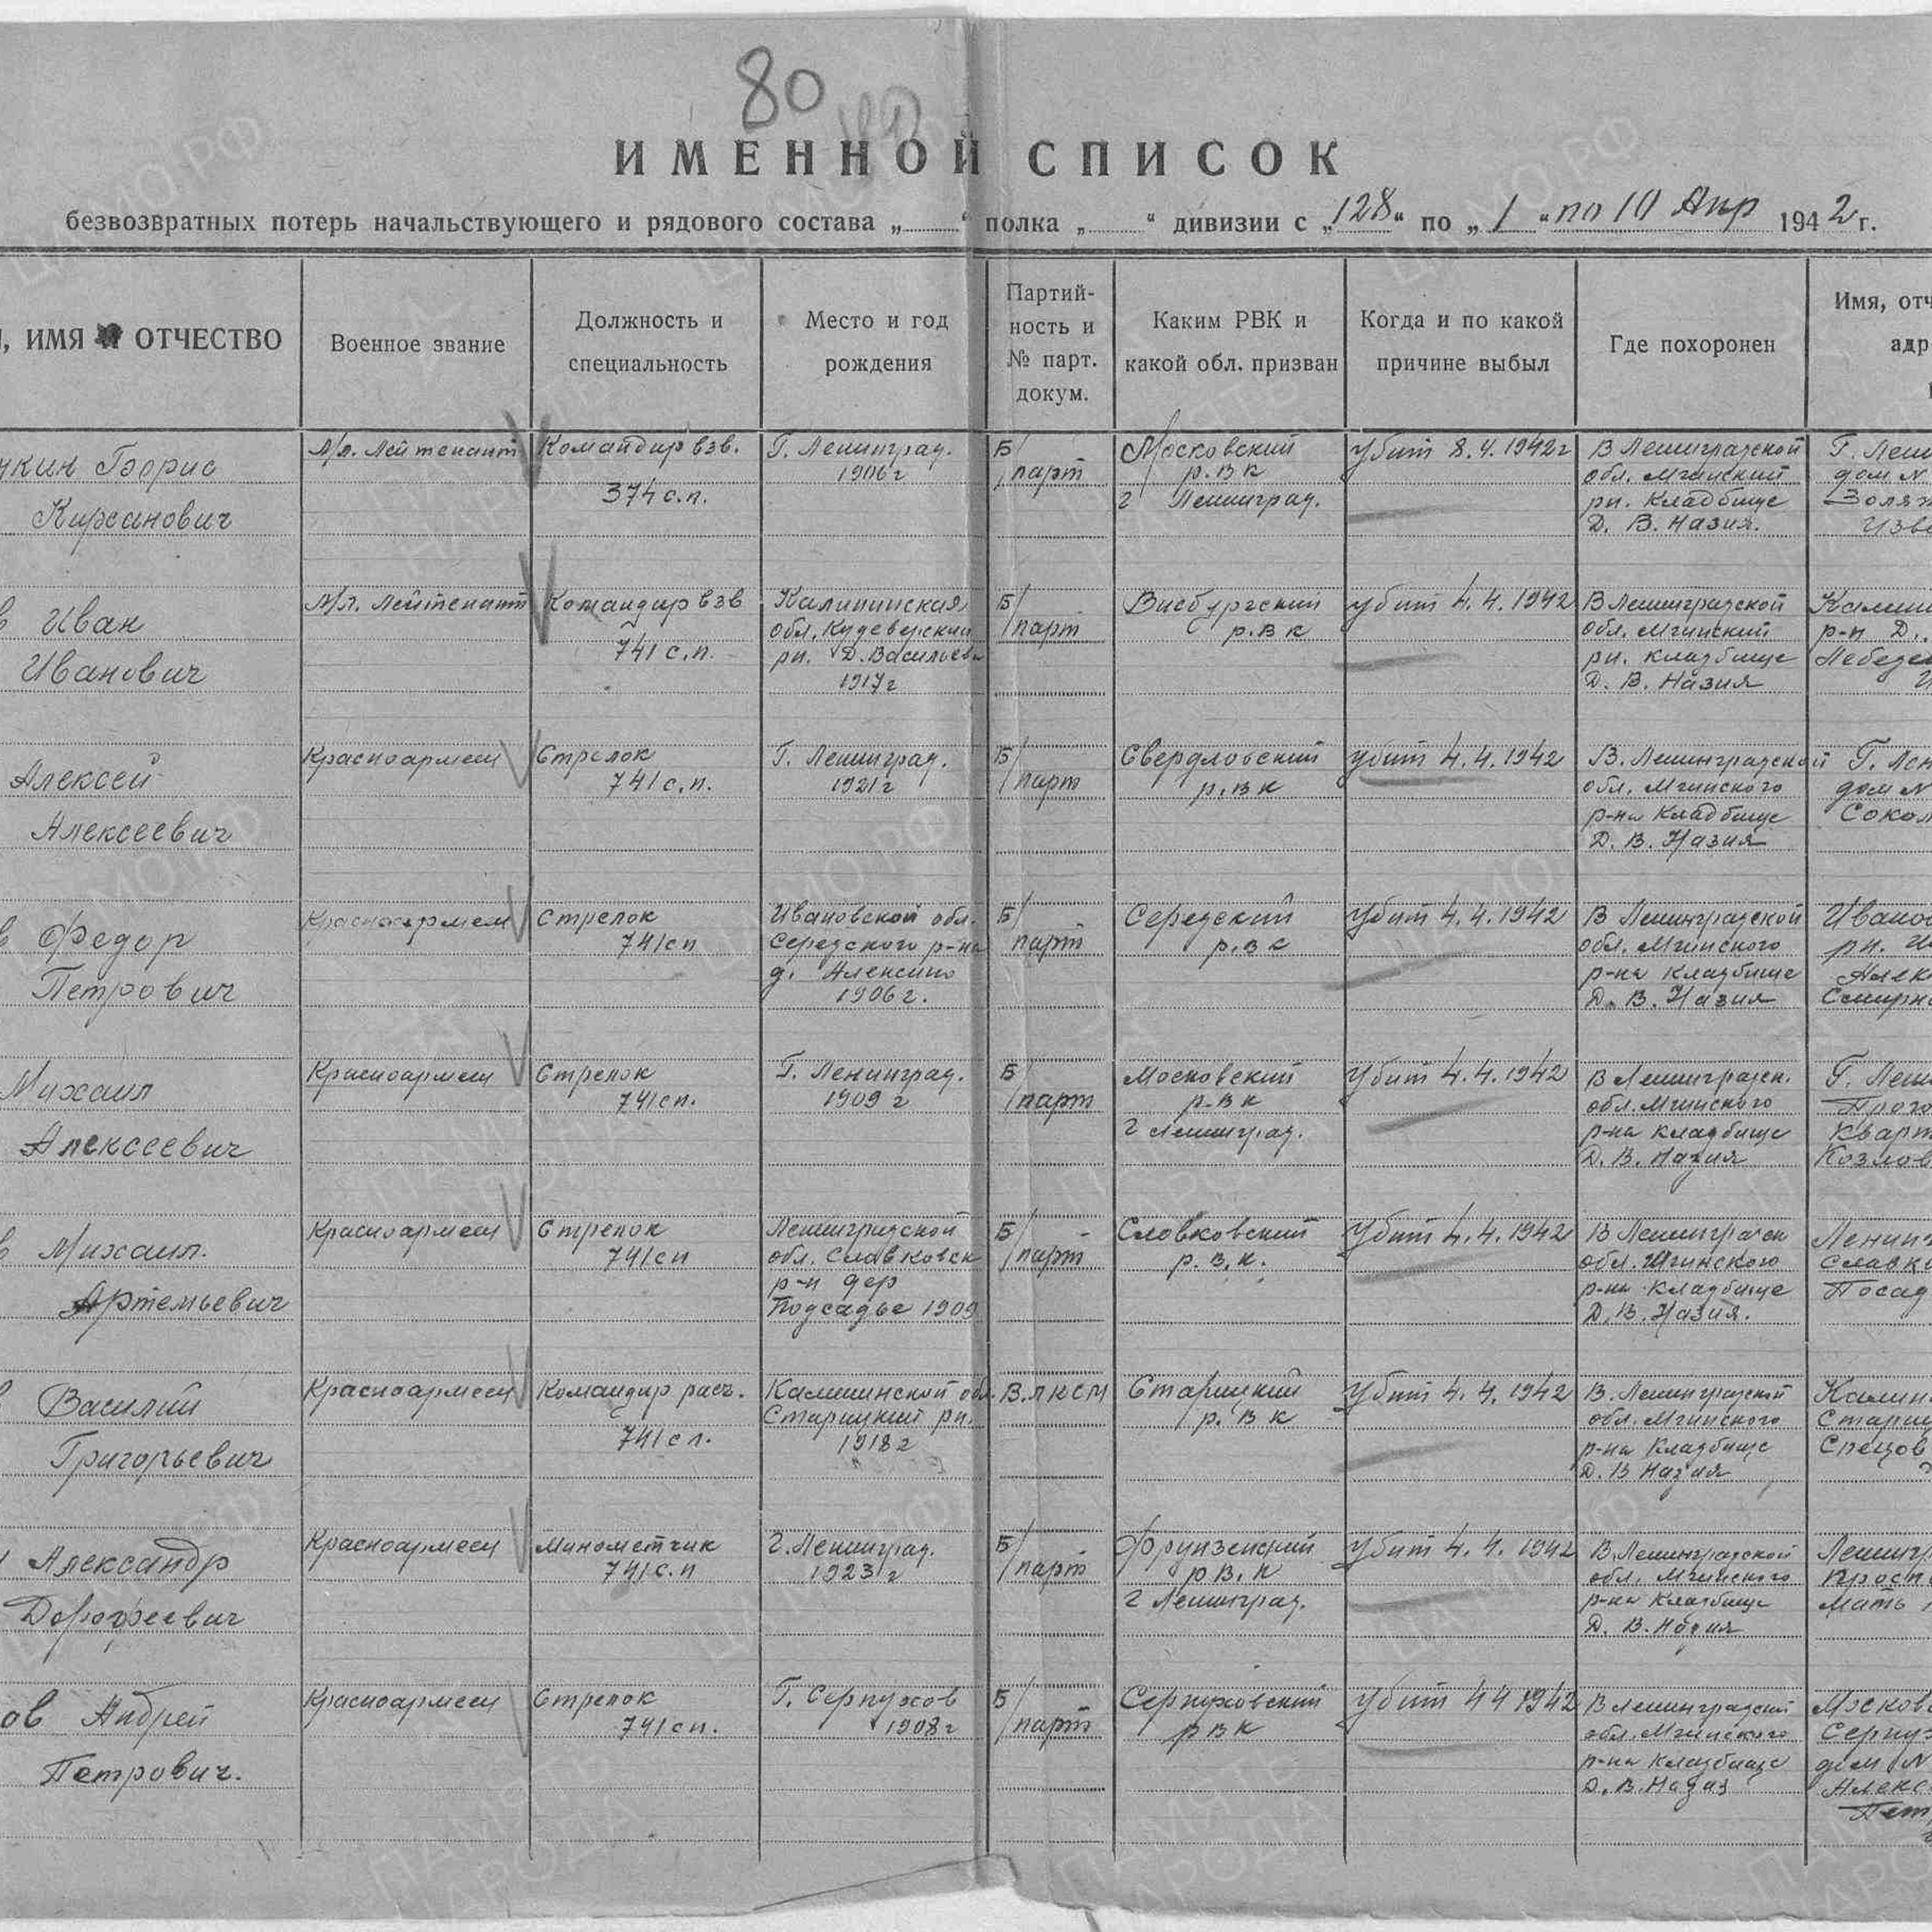 80
ИМЕННОЙ СПИСОК
безвозвратных потерь начальствующего и рядового состава „ “ полка „ “ дивизии с „128“ по „1“ по 10 Апр 1942 г.
, ИМЯ И ОТЧЕСТВО
Военное звание
Должность и
специальность
Место и год
рождения
Партий-
ность и
№ парт.
докум.
Каким РВК и
какой обл. призван
Когда и по какой
причине выбыл
Где похоронен
Имя, отч
адр
укин Борис
Кирсанович
Мл. Лейтенант
Командир взв.
374 с.п.
Г. Ленинград.
1906 г
Б/
парт
Московский
р.в к
г Ленинград.
убит 8.4.1942 г
В Ленинградской
обл. Мгинский
рн. Кладбище
Д. В. Назия.
Г. Лени
дом N
в Иван
Иванович
Мл. Лейтенант
Командир взв
741 с.п.
Калининская
обл. Кудеверский
рн. Д. Васильев
1917 г
Б/
/парт
р.в к
убит 4.4.1942
В Ленинградской
обл. Мгинский
рн. кладбище
Д. В. Назия
Калин
р-н Д.
Лебеде
Алексей
Алексеевич
Красноармеец
Стрелок
741 с.п.
Г. Ленинград.
1921 г
Б/
/парт
Свердловский
р.в к
убит 4.4.1942
В. Ленинградской
обл. Мгинского
р-на Кладбище
Д. В. Назия
Г. Лен
дом N
Сокол
в Федор
Петрович
Красноармеец
Стрелок
741 сп
Ивановской обл.
Середского р-на
д. Алексино
1906 г.
Б/
парт
Середский
р.в к
Убит 4.4.1942
В Ленинградской
обл. Мгинского
р-на кладбище
Д. В. Назия
Ивано
рн.
Алек
Смирн
Михаил
Алексеевич
Красноармеец
Стрелок
741 сп.
Г. Ленинград.
1909 г
Б
/парт
Московский
р-в к
г Ленинград.
Убит 4.4.1942
В Ленинградск.
обл. Мгинского
р-на кладбище
Д. В. Назия
Г. Лени
кварт
Козлов
в Михаил.
Артемьевич
Красноармеец
Стрелок
741 сп
Ленинградской
обл. Славковск
р-н дер
Подсадье 1909
Б/
/парт
Словковский
р. в. к.
Убит 4.4.1942
В Ленинградск
обл. Мгинского
р-на Кладбище
Д. В. Назия.
Ленинг
Славк
Посад
в Василий
Григорьевич
Красноармеец
Командир расч.
741 с п.
Калининской обл.
Старицкий рн.
1918 г
В.ЛКСМ
Старицкий
р. в к
Убит 4.4.1942
В. Ленинградской
обл. Мгинского
р-на Кладбище
Д. В Назия
Калин
Стариц
Спецов
Александр
Дорофеевич
Красноармеец
Минометчик
741 с.п
г. Ленинград.
1923 г
Б/
/парт
Фрунзенский
р в. к
г Ленинград.
Убит 4.4.1942
В. Ленинградской
обл. Мгинского
р-на Кладбище
Д. В. Назия
Ленингр
просп
мать
ов Андрей
Петрович.
Красноармеец
Стрелок
741 сп.
Г. Серпухов
1908 г
Б/
/парт
Серпуховский
р в к
Убит 4 4 1942
В Ленинградской
обл. Мгинского
р-на кладбище
Московс
Серпух
дом N
Алекс
Пет